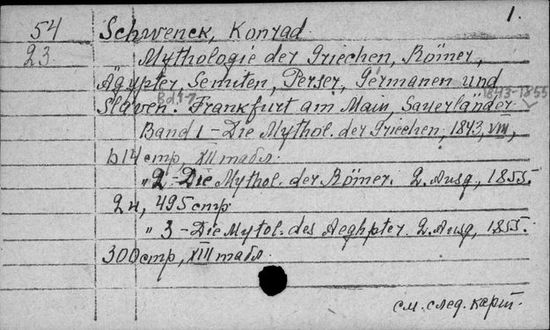 1.
54 Schwenck, Konrad
23 Mythologie der Griechen, Römer,
Ägypter, Semiten, Perser, Germanen und
Slaven. Bd. 1-7 Frankfurt am Main, Sauerländer 1843-1855
Band 1 - Die Mythol. der Griechen, 1843, VIII,
614 стр, XII табл.
" 2 - Die Mythol. der Römer. 2. Ausg, 1855.
2 н, 495 стр
" 3 - Die Mytol. des Aeghpter. 2. Ausg, 1855.
300 стр, XIII табл.
см. след. карт.